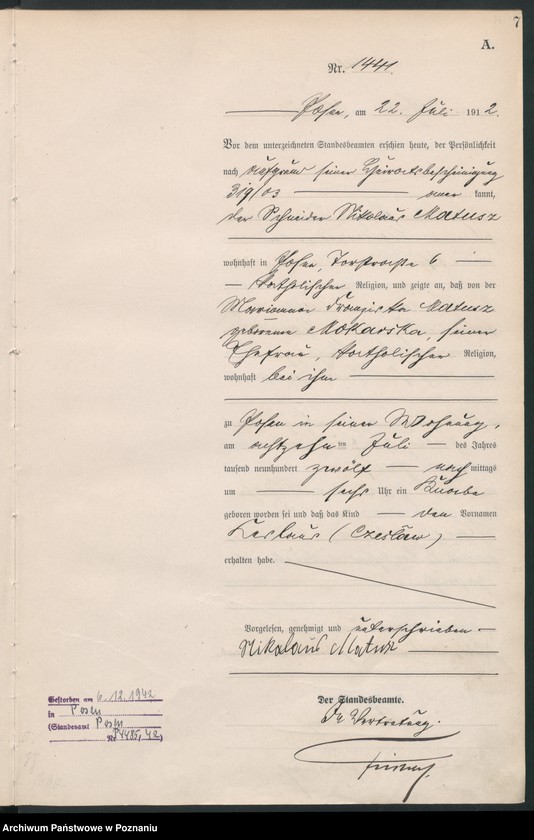 7
A.
Nr. 1441.
Posen, am 22. Juli 1912.
Vor dem unterzeichneten Standesbeamten erschien heute, der Persönlichkeit
nach aufgrund seiner Heiratsbescheinigung
319/03 — aner kannt,
der Schneider Nikolaus Matusz
wohnhaft in Posen, Torstraße 6 —
— katholischer Religion, und zeigte an, daß von der
Marianna Franziska Matusz
geborenen Mokarska, seiner
Ehefrau, katholischer Religion,
wohnhaft bei ihm —
zu Posen in seiner Wohnung,
am achtzehnten Juli — des Jahres
tausend neunhundert zwölf — nachmittags
um — sechs Uhr ein Knabe
geboren worden sei und daß das Kind — den Vornamen
Ceslaus (Czeslaw) —
erhalten habe.
Vorgelesen, genehmigt und unterschrieben —
Nikolaus Matusz
Der Standesbeamte.
In Vertretung.
Gestorben am 6.12.1942
in Posen
(Standesamt Posen
Nr. 4485/42)
Archiwum Państwowe w Poznaniu